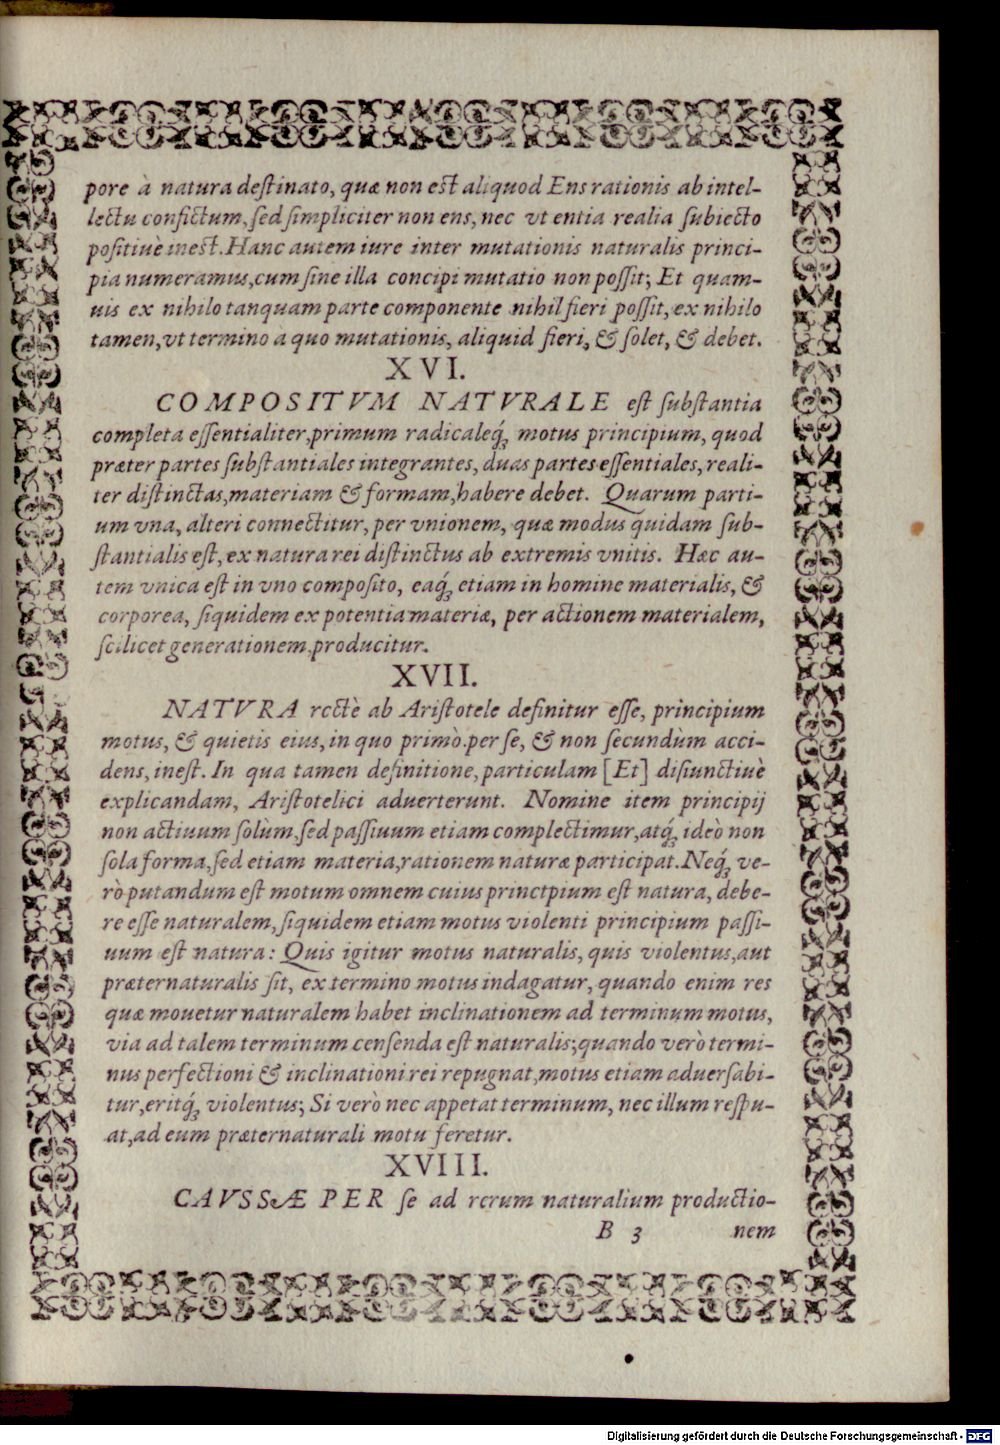 pore à natura destinato, quæ non est aliquod Ens rationis ab intel-
lectu confictum, sed simpliciter non ens, nec vt entia realia subiecto
positiuè inest. Hanc autem iure inter mutationis naturalis princi-
pia numeramus, cum sine illa concipi mutatio non possit; Et quam-
uis ex nihilo tanquam parte componente nihil fieri possit, ex nihilo
tamen, vt termino a quo mutationis, aliquid fieri, & solet, & debet.
XVI.
COMPOSITVM NATVRALE est substantia
completa essentialiter, primum radicaleq́ꝫ motus principium, quod
præter partes substantiales integrantes, duas partes essentiales, reali-
ter distinctas, materiam & formam, habere debet. Quarum parti-
um vna, alteri connectitur, per vnionem, quæ modus quidam sub-
stantialis est, ex natura rei distinctus ab extremis vnitis. Hæc au-
tem vnica est in vno composito, eaq́ꝫ etiam in homine materialis, &
corporea, siquidem ex potentia materiæ, per actionem materialem,
scilicet generationem producitur.
XVII.
NATVRA rectè ab Aristotele definitur esse, principium
motus, & quietis eius, in quo primò per se, & non secundùm acci-
dens, inest. In qua tamen definitione, particulam [Et] disiunctiuè
explicandam, Aristotelici aduerterunt. Nomine item principij
non actiuum solùm, sed passiuum etiam complectimur, atq́ꝫ ideò non
sola forma, sed etiam materia, rationem naturæ participat. Neq́ꝫ ve-
rò putandum est motum omnem cuius princtpium est natura, debe-
re esse naturalem, siquidem etiam motus violenti principium passi-
uum est natura: Quis igitur motus naturalis, quis violentus, aut
præternaturalis sit, ex termino motus indagatur, quando enim res
quæ mouetur naturalem habet inclinationem ad terminum motus,
via ad talem terminum censenda est naturalis; quando verò termi-
nus perfectioni & inclinationi rei repugnat, motus etiam aduersabi-
tur, eritq́ꝫ violentus; Si verò nec appetat terminum, nec illum respu-
at, ad eum præternaturali motu feretur.
XVIII.
CAVSSÆ PER se ad rerum naturalium productio-
B 3 nem
Digitalisierung gefördert durch die Deutsche Forschungsgemeinschaft - DFG